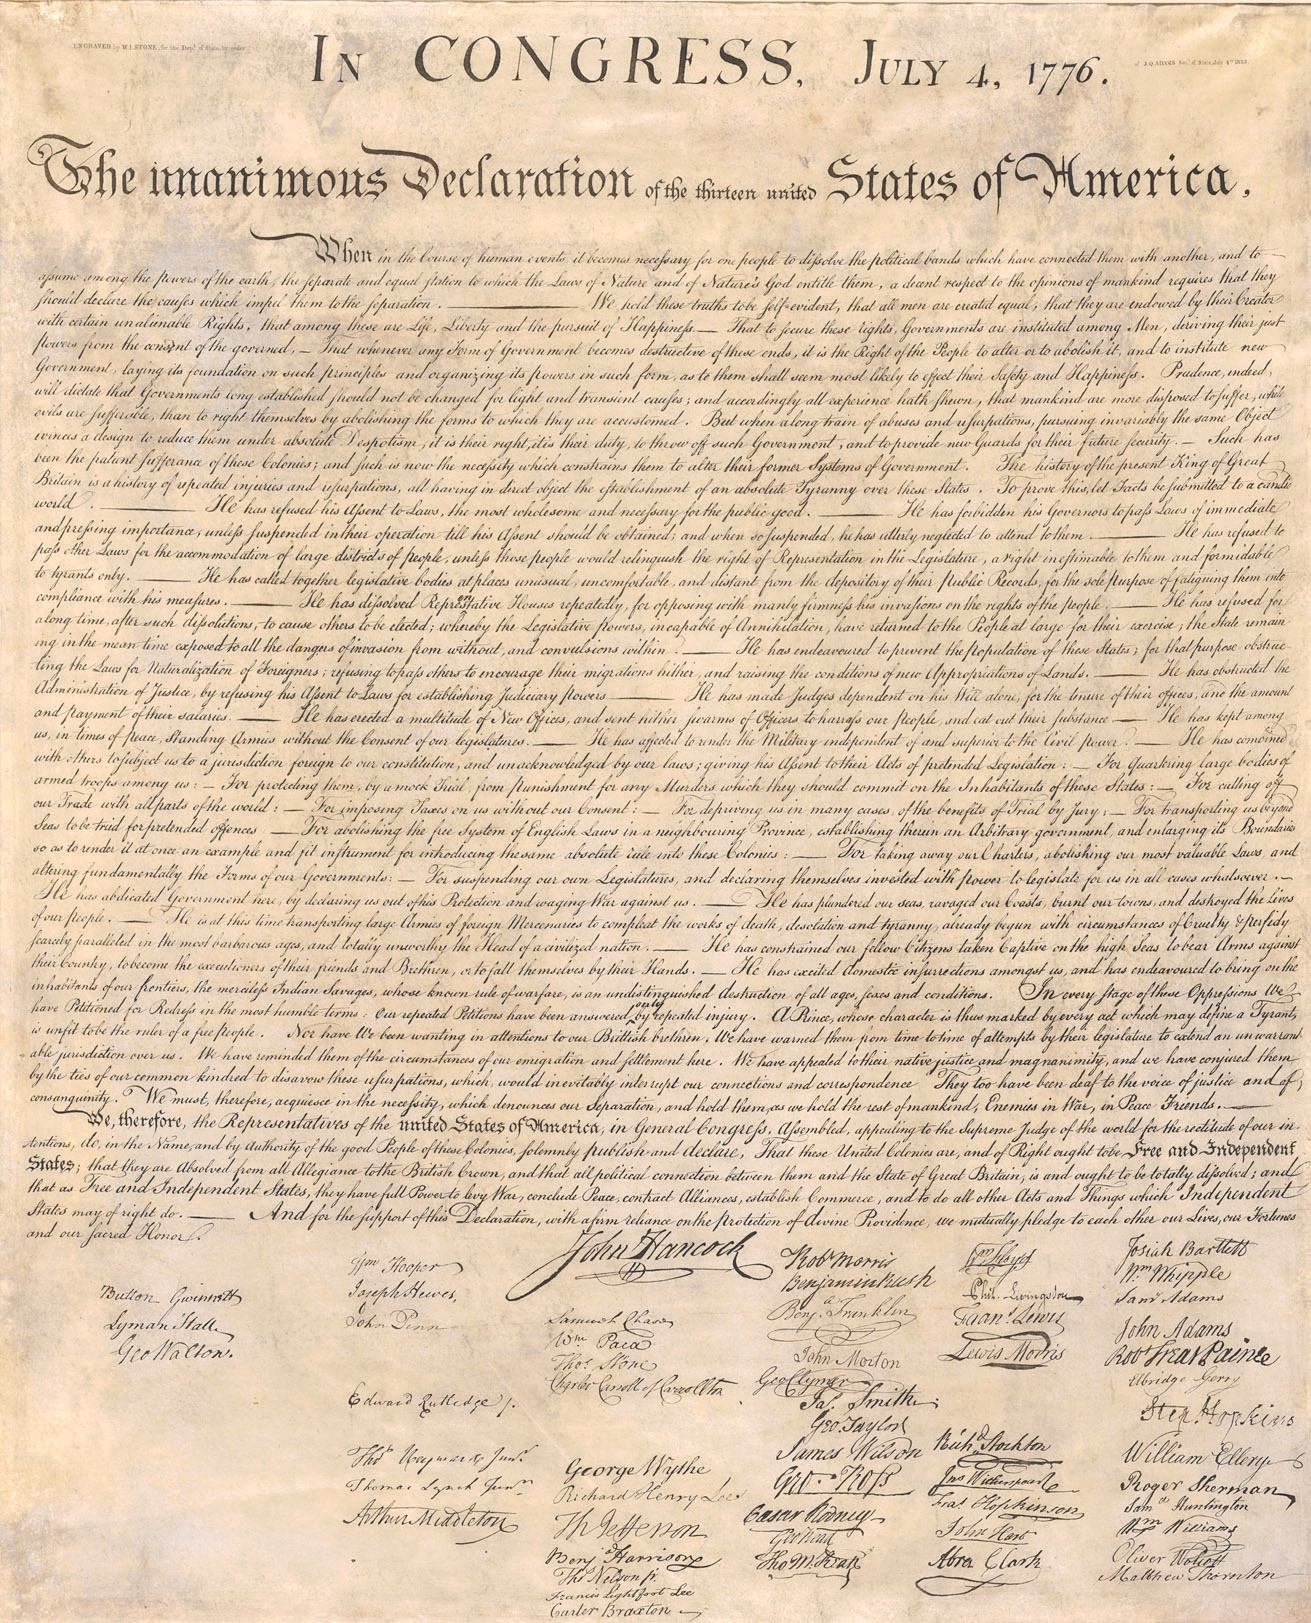 ENGRAVED by W.I.STONE, for the Dept. of State, by order
of J.Q.ADAMS Secy. of State, July 4th 1823.
IN CONGRESS, JULY 4, 1776.
The unanimous Declaration of the thirteen united States of America,
When in the Course of human events, it becomes necessary for one people to dissolve the political bands which have connected them with another, and to
assume among the powers of the earth, the separate and equal station to which the Laws of Nature and of Nature's God entitle them, a decent respect to the opinions of mankind requires that they
should declare the causes which impel them to the separation. — We hold these truths to be self-evident, that all men are created equal, that they are endowed by their Creator
with certain unalienable Rights, that among these are Life, Liberty and the pursuit of Happiness. — That to secure these rights, Governments are instituted among Men, deriving their just
powers from the consent of the governed, — That whenever any Form of Government becomes destructive of these ends, it is the Right of the People to alter or to abolish it, and to institute new
Government, laying its foundation on such principles and organizing its powers in such form, as to them shall seem most likely to effect their Safety and Happiness. Prudence, indeed,
will dictate that Governments long established should not be changed for light and transient causes; and accordingly all experience hath shewn, that mankind are more disposed to suffer, while
evils are sufferable, than to right themselves by abolishing the forms to which they are accustomed. But when a long train of abuses and usurpations, pursuing invariably the same Object
evinces a design to reduce them under absolute Despotism, it is their right, it is their duty, to throw off such Government, and to provide new Guards for their future security. — Such has
been the patient sufferance of these Colonies; and such is now the necessity which constrains them to alter their former Systems of Government. The history of the present King of Great
Britain is a history of repeated injuries and usurpations, all having in direct object the establishment of an absolute Tyranny over these States. To prove this, let Facts be submitted to a candid
world. — He has refused his Assent to Laws, the most wholesome and necessary for the public good. — He has forbidden his Governors to pass Laws of immediate
and pressing importance, unless suspended in their operation till his Assent should be obtained; and when so suspended, he has utterly neglected to attend to them. — He has refused to
pass other Laws for the accommodation of large districts of people, unless those people would relinquish the right of Representation in the Legislature, a right inestimable to them and formidable
to tyrants only. — He has called together legislative bodies at places unusual, uncomfortable, and distant from the depository of their public Records, for the sole purpose of fatiguing them into
compliance with his measures. — He has dissolved Representative Houses repeatedly, for opposing with manly firmness his invasions on the rights of the people. — He has refused for
a long time, after such dissolutions, to cause others to be elected; whereby the Legislative powers, incapable of Annihilation, have returned to the People at large for their exercise; the State remain
ing in the mean time exposed to all the dangers of invasion from without, and convulsions within. — He has endeavoured to prevent the population of these States; for that purpose obstruc
ting the Laws for Naturalization of Foreigners; refusing to pass others to encourage their migrations hither, and raising the conditions of new Appropriations of Lands. — He has obstructed the
Administration of Justice, by refusing his Assent to Laws for establishing Judiciary powers — He has made Judges dependent on his Will alone, for the tenure of their offices, and the amount
and payment of their salaries. — He has erected a multitude of New Offices, and sent hither swarms of Officers to harrass our people, and eat out their substance — He has kept among
us, in times of peace, Standing Armies without the Consent of our legislatures. — He has affected to render the Military independent of and superior to the Civil power. — He has combined
with others to subject us to a jurisdiction foreign to our constitution, and unacknowledged by our laws; giving his Assent to their Acts of pretended Legislation: — For Quartering large bodies of
armed troops among us: — For protecting them, by a mock Trial, from punishment for any Murders which they should commit on the Inhabitants of these States: — For cutting off
our Trade with all parts of the world: — For imposing Taxes on us without our Consent: — For depriving us in many cases, of the benefits of Trial by Jury: — For transporting us beyond
Seas to be tried for pretended offences — For abolishing the free System of English Laws in a neighbouring Province, establishing therein an Arbitrary government, and enlarging its Boundaries
so as to render it at once an example and fit instrument for introducing the same absolute rule into these Colonies: — For taking away our Charters, abolishing our most valuable Laws, and
altering fundamentally the Forms of our Governments: — For suspending our own Legislatures, and declaring themselves invested with power to legislate for us in all cases whatsoever. —
He has abdicated Government here, by declaring us out of his Protection and waging War against us. — He has plundered our seas, ravaged our Coasts, burnt our towns, and destroyed the lives
of our people. — He is at this time transporting large Armies of foreign Mercenaries to compleat the works of death, desolation and tyranny, already begun with circumstances of Cruelty & perfidy
scarcely paralleled in the most barbarous ages, and totally unworthy the Head of a civilized nation. — He has constrained our fellow Citizens taken Captive on the high Seas to bear Arms against
their Country, to become the executioners of their friends and Brethren, or to fall themselves by their Hands. — He has excited domestic insurrections amongst us, and has endeavoured to bring on the
inhabitants of our frontiers, the merciless Indian Savages, whose known rule of warfare, is an undistinguished destruction of all ages, sexes and conditions. In every stage of these Oppressions We
have Petitioned for Redress in the most humble terms: Our repeated Petitions have been answered only by repeated injury. A Prince, whose character is thus marked by every act which may define a Tyrant,
is unfit to be the ruler of a free people. Nor have We been wanting in attentions to our Brittish brethren. We have warned them from time to time of attempts by their legislature to extend an unwarrant
able jurisdiction over us. We have reminded them of the circumstances of our emigration and settlement here. We have appealed to their native justice and magnanimity, and we have conjured them
by the ties of our common kindred to disavow these usurpations, which, would inevitably interrupt our connections and correspondence They too have been deaf to the voice of justice and of
consanguinity. We must, therefore, acquiesce in the necessity, which denounces our Separation, and hold them, as we hold the rest of mankind, Enemies in War, in Peace Friends. —
We, therefore, the Representatives of the united States of America, in General Congress, Assembled, appealing to the Supreme Judge of the world for the rectitude of our in-
tentions, do, in the Name, and by Authority of the good People of these Colonies, solemnly publish and declare, That these United Colonies are, and of Right ought to be Free and Independent
States; that they are Absolved from all Allegiance to the British Crown, and that all political connection between them and the State of Great Britain, is and ought to be totally dissolved; and
that as Free and Independent States, they have full Power to levy War, conclude Peace, contract Alliances, establish Commerce, and to do all other Acts and Things which Independent
States may of right do. — And for the support of this Declaration, with a firm reliance on the protection of divine Providence, we mutually pledge to each other our Lives, our Fortunes
and our sacred Honor.
Button Gwinnett
Lyman Hall
Geo Walton.
Wm Hooper
Joseph Hewes,
John Penn
Edward Rutledge /.
Thos Heyward Junr.
Thomas Lynch Junr.
Arthur Middleton
John Hancock
Samuel Chase
Wm Paca
Thos. Stone
Charles Carroll of Carrollton
George Wythe
Richard Henry Lee
Th Jefferson
Benj Harrison
Thos Nelson jr.
Francis Lightfoot Lee
Carter Braxton
Robt Morris
Benjamin Rush
Benj. Franklin
John Morton
Geo Clymer
Jas. Smith.
Geo. Taylor
James Wilson
Geo. Ross
Caesar Rodney
Geo Read
Tho M:Kean
Wm Floyd
Phil. Livingston
Frans. Lewis
Lewis Morris
Richd. Stockton
Jno Witherspoon
Fras. Hopkinson
John Hart
Abra Clark
Josiah Bartlett
Wm Whipple
Saml Adams
John Adams
Robt Treat Paine
Elbridge Gerry
Step. Hopkins
William Ellery
Roger Sherman
Saml Huntington
Wm Williams
Oliver Wolcott
Matthew Thornton